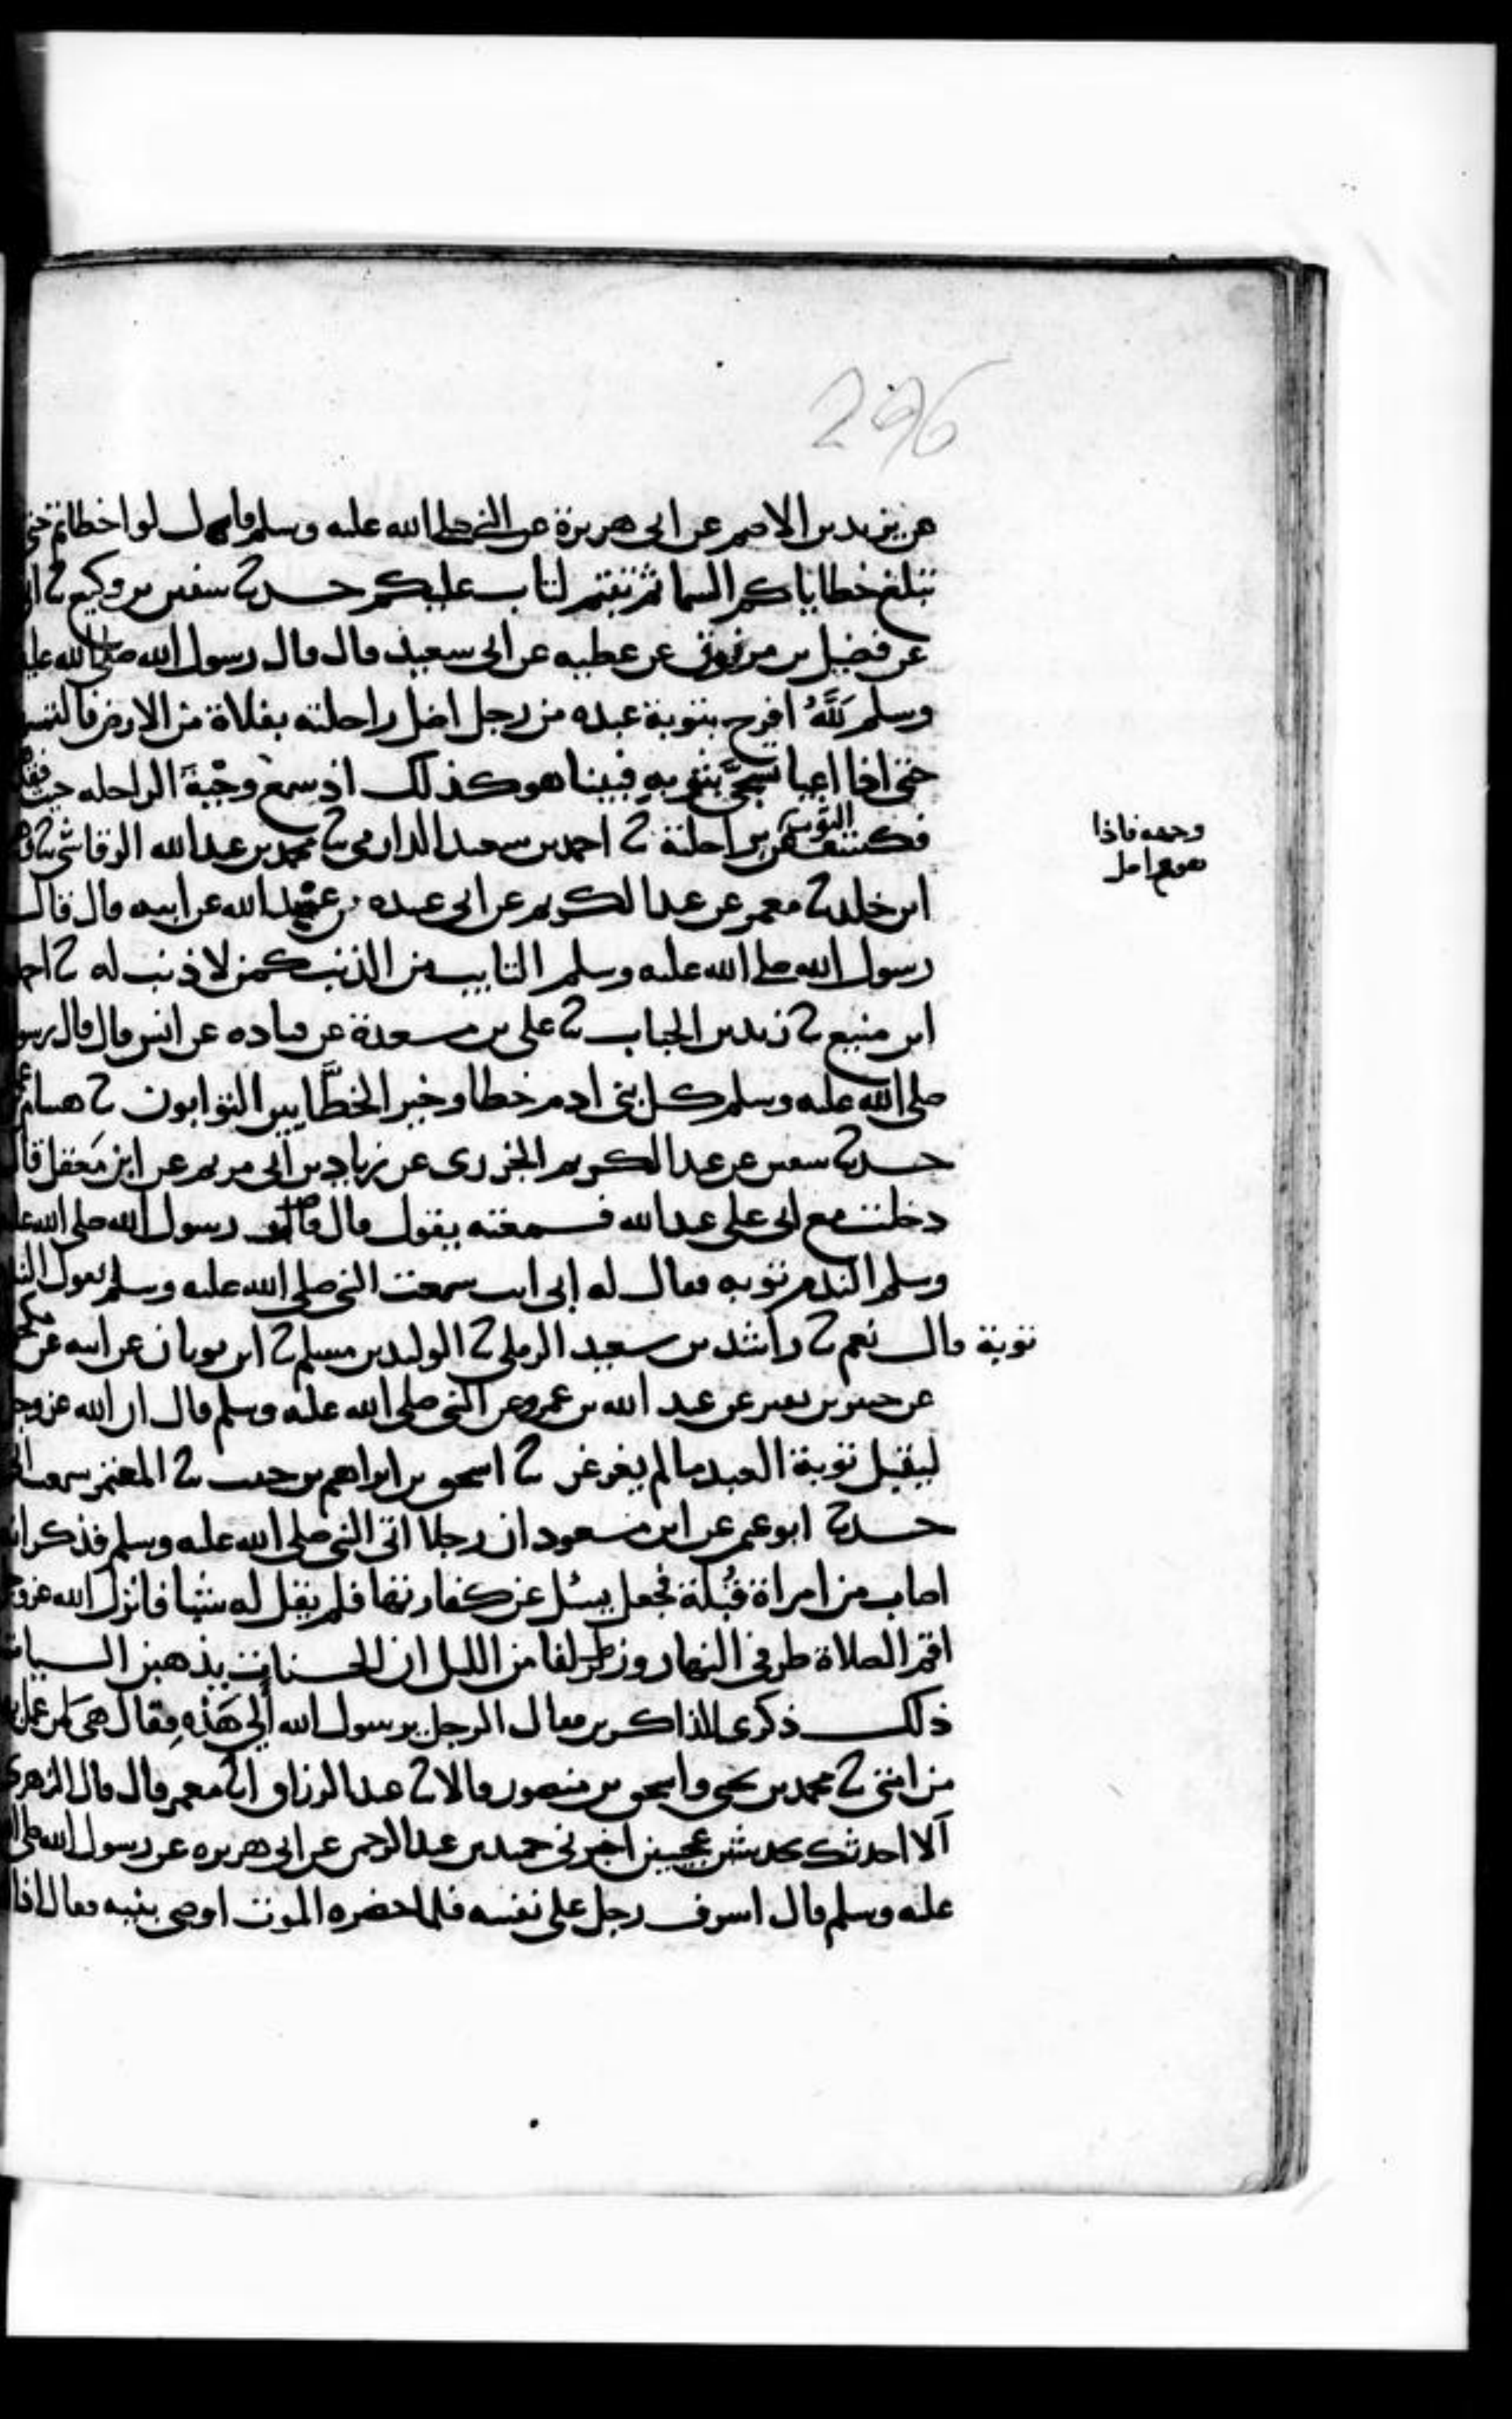 296
عن يزيد بن الاصم عن ابى هريرة عن النبى صلى الله عليه وسلم قال لو اخطاتم حتى
تبلغ خطاياكم السما ثم تبتم لتاب عليكم حدثنا سفين بن وكيع ثنا
عن فضيل بن مرزوق عن عطيه عن ابى سعيد قال قال رسول الله صلى الله عليه
وسلم لَلَّهُ افرح بتوبة عبده من رجل اضل راحلته بفلاة من الارض فالتمس
حتى اذا اعيا تسجَّى بثوبه فبينا هو كذلك اذ سمع وجْبةَ الراحله حيث
فكشف الثوب براحلته ثنا احمد بن سعيد الدارمى ثنا محمد بن عبد الله الرقاشى ثنا
وجهه فاذا
هو مع اصل
ابن خلد ثنا معمر عن عبد الكريم عن ابى عبيده بن عبد الله عن ابيه قال قال
رسول الله صلى الله عليه وسلم التايب من الذنب كمن لا ذنب له ثنا احمد
ابن منيع ثنا زيد بن الحباب ثنا على بن مسعدة عن قتاده عن انس قال قال رسول
صلى الله عليه وسلم كل بنى ادم خطا وخير الخطَّايين التوابون ثنا هشام
حدثنا سفين عن عبد الكريم الجزرى عن زياد بن ابى مريم عن ابن مَعقل قال
دخلت مع ابى على عبد الله فسمعته يقول قال رسول الله صلى الله عليه
وسلم الندم توبه فقال له ابى انت سمعت النبى صلى الله عليه وسلم يقول الندم
توبة قال نعم ثنا راشد بن سعيد الرملى ثنا الوليد بن مسلم ثنا ابن ثوبان عن ابيه عن
عن جبير بن نفير عن عبد الله بن عمرو عن النبى صلى الله عليه وسلم قال ان الله عز وجل
ليقبل توبة العبد ما لم يغرغر ثنا اسحق بن ابراهيم بن حبيب ثنا المعتمر سمعت
حدثنا ابو عثمن عن ابن مسعود ان رجلا اتى النبى صلى الله عليه وسلم فذكر انه
اصاب من امراة قُبْلة فجعل يسئل عن كفارتها فلم يقل له شيا فانزل الله عز وجل
اقم الصلاة طرفى النهار وزلفا من الليل ان الحسنات يذهبن السيات
ذلك ذكرى للذاكرين فقال الرجل يرسول الله أَلِى هَذه فقال هى لمن عمل بها
من امتى ثنا محمد بن يحيى واسحق بن منصور قالا ثنا عبد الرزاق انا معمر قال قال الزهرى
آلا احدثك بحديثين عجيبين اخبرنى حميد بن عبد الرحمن عن ابى هريره عن رسول الله صلى الله
عليه وسلم قال اسرف رجل على نفسه فلما حضره الموت اوصى بنيه فقال اذا